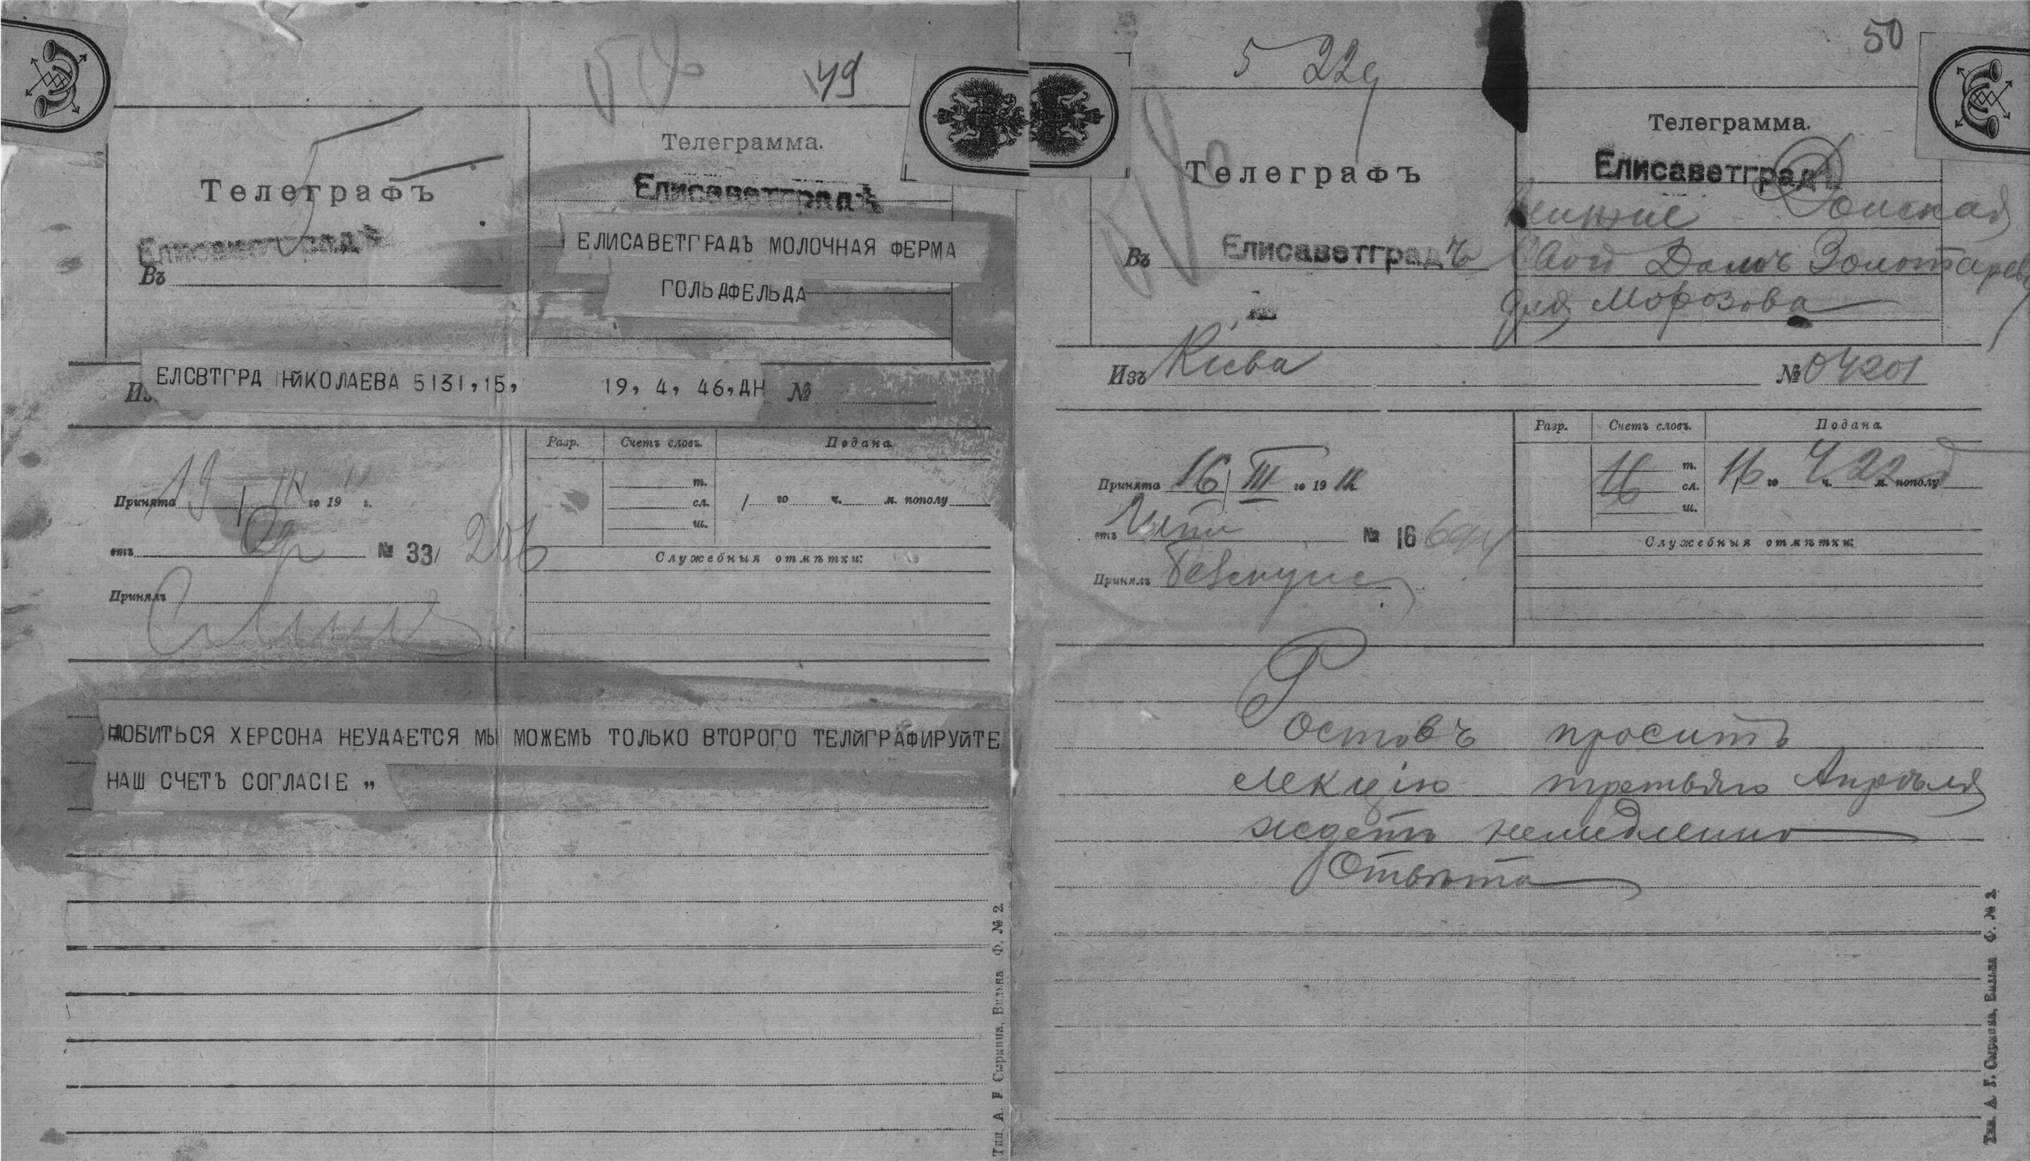 49
Телеграмма.
Телеграфъ
Елисаветградъ
Елисаветградъ
ЕЛИСАВЕТГРАДЪ МОЛОЧНАЯ ФЕРМА
ГОЛЬДФЕЛЬДА
Въ
ЕЛСВТГРД НИКОЛАЕВА 5131, 15, 19, 4, 46, ДН №
Разр. Счетъ словъ. Подана
т.
Принята 19 го 19 г.
сл. го ч. м. пополу
ш.
отъ № 33/ 206
Служебныя отмѣтки:
Принялъ
ДОБИТЬСЯ ХЕРСОНА НЕУДАЕТСЯ МЫ МОЖЕМЪ ТОЛЬКО ВТОРОГО ТЕЛЙГРАФИРУЙТЕ
НАШ СЧЕТЪ СОГЛАСІЕ „
Тип. А. Г. Сыркина, Вильна Ф. № 2.
50
5 22
Телеграмма.
Телеграфъ
Елисаветградъ
Донская
Въ Елисаветградъ
Домъ Золотарева
для Морозова
Изъ Кіева № 04201
Разр. Счетъ словъ. Подана
т.
Принята 16 III го 19
16 сл. 16 го 4 ч. 22 м. пополу д
ш.
отъ № 16
Служебныя отмѣтки:
Принялъ
Ростовъ проситъ
лекцію третьяго Апрѣля
ждетъ немедленно
Отвѣта
Тип. А. Г. Сыркина, Вильна Ф. № 2.